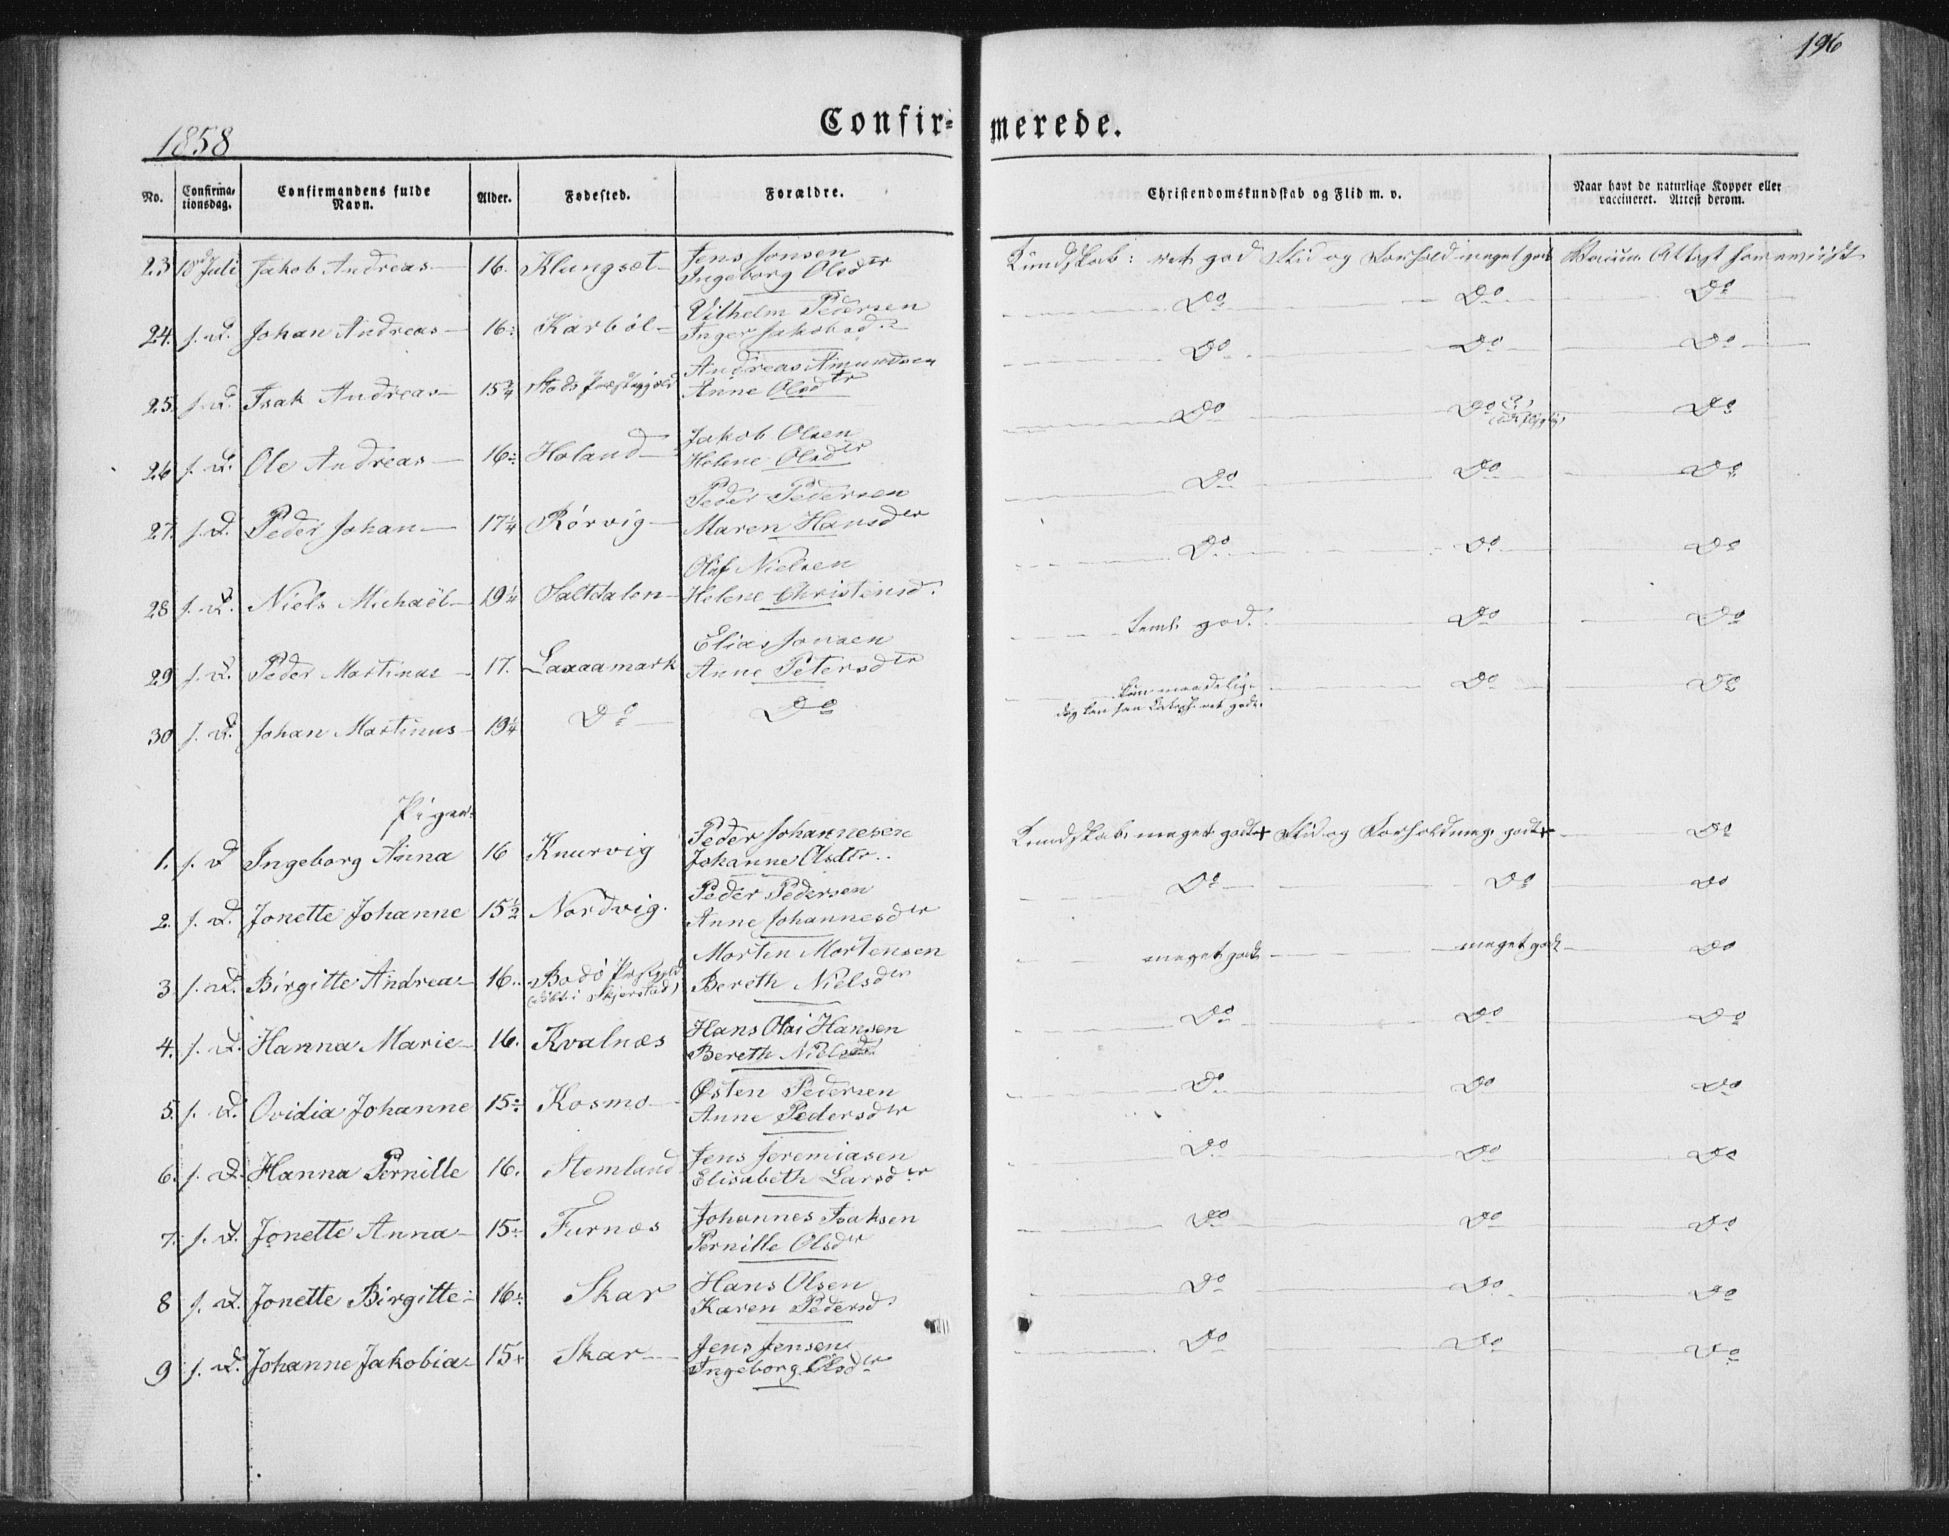 196
Confir- merede.
1858
No. Confirma-tionsdag. Confirmandens fulde Navn. Alder. Fødested. Forældre. Christendomskundskab og Flid m. v. Naar havt de naturlige Kopper eller vaccineret. Attest derom.
23 18de Juli Jakob Andreas 16. Klungset Jens Jonsen Kundskab: ret god Flid og Forhold meget godt Vaccin. Attest
Ingeborg Olsdtr
24. s. D. Johan Andreas 16. Karbøl Vilhelm Pedersen Do Do Do
Inger Jakobsd.
25. s. D. Isak Andreas 15¾ Stods Præstegjeld Andreas Amundsen Do Do Do
Anne Olsdtr
26 s. D. Ole Andreas 16. Høland Jakob Olsen Do Do Do
Helene Olsdtr
27. s. D. Peder Johan 17¼ Rørvig Peder Pedersen Do Do Do
Maren Hansdtr
28 s. D. Niels Michaël 19¼ Saltdalen Oluf Nielsen Do Do Do
Helene Christensd.
29 s. D. Peder Martinus 17. Laxaamark Elias Jonsen teml. god. Do Do
Anne Petersdtr
30 s. D. Johan Martinus 19¼ Do Do kun maadelig Do Do
Piger
1. s. D Ingeborg Anna 16 Knurvig Peder Johannesen Kundskab meget godt + Flid og Forhold meg. godt + Do
Johanne Olsdtr.
2. s. D. Jonette Johanne 15½ Nordvig. Peder Pedersen Do Do Do
Anne Johannesdtr
3 s. D. Birgitte Andrea 16. Bodø Prstgjeld Morten Mortensen meget godt meget godt Do
Skjerstad) Bereth Nielsdtr
4. s. D. Hanna Marie 16. Kvalnæs Hans Olai Hansen Do Do Do
Bereth Nielsd.
5. s. D. Ovidia Johanne 15. Kosmo Østen Pedersen Do Do Do
Anne Pedersdtr
6. s. D. Hanna Pernille 16. Stemland Jens Jeremiasen Do Do Do
Elisabeth Larsdtr
7. s. D. Jonette Anna 15. Furnæs Johannes Isaksen Do Do Do
Pernille Olsdtr
8 s. D. Jonette Birgitte 16. Skar Hans Olsen Do Do Do
Karen Pedersd
9 s. D. Johanne Jakobia 15. Skar Jens Jensen Do Do Do
Ingeborg Olsdtr